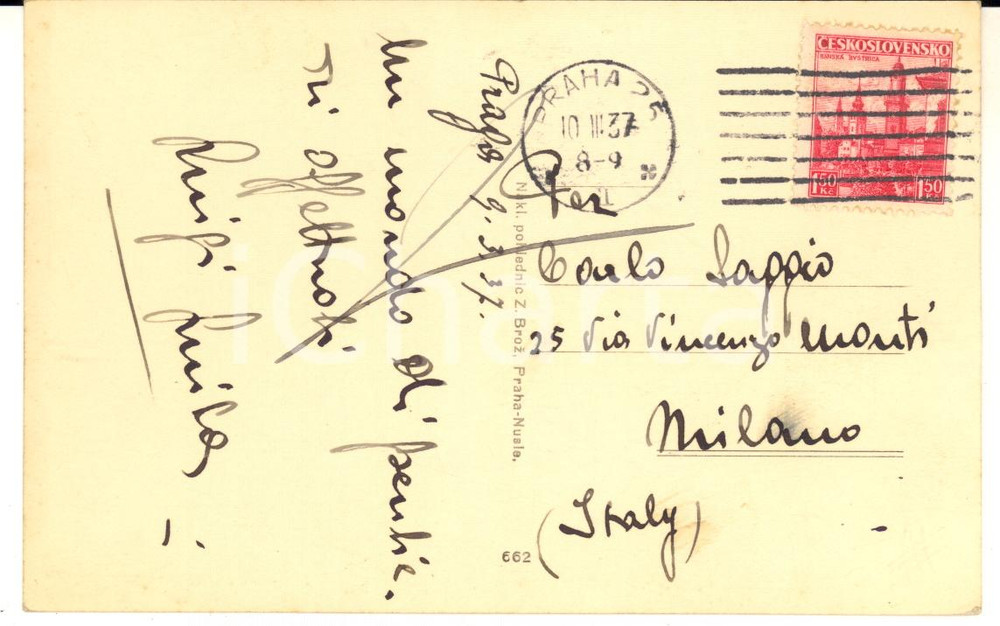 Praga 9.3.37.
Un mondo di pensie.
ri affettuosi.
Luigi Luisa
ČESKOSLOVENSKO
BÁNSKÁ BYSTRICA
1·50 Kč
1·50 Kč
PRAHA 25
10 III 37
8-9
Per
Carlo Saggio
25 Via Vincenzo Monti
Milano
(Italy)
Nakl. pohlednic Z. Brož, Praha-Nusle.
662
iCharta